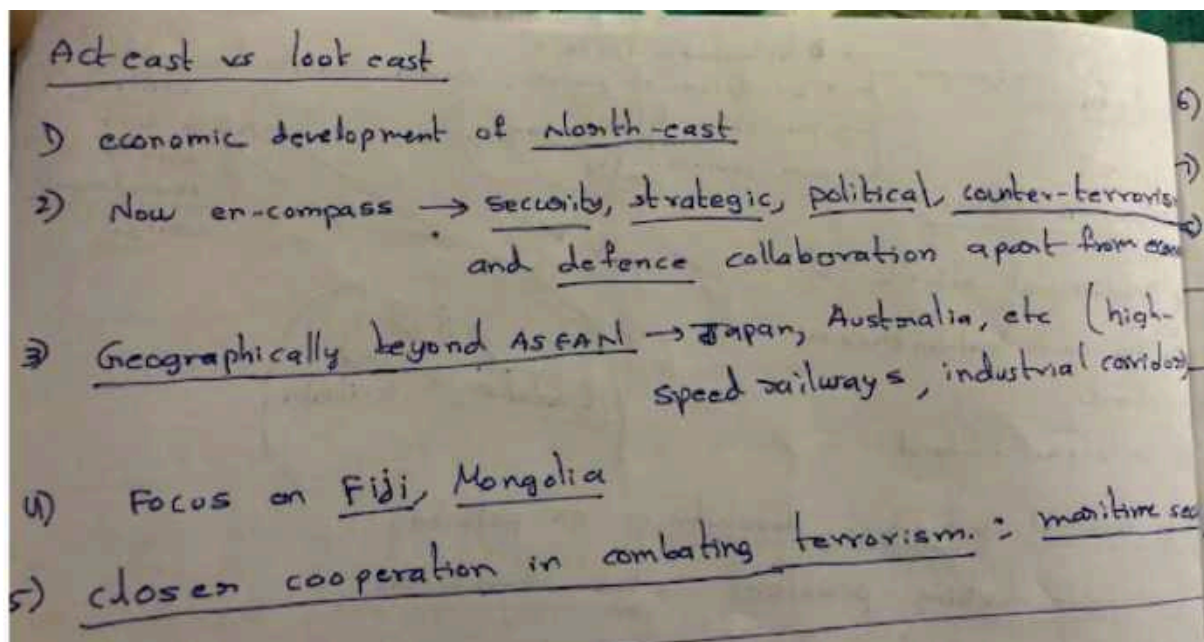 Act east vs look east
1) economic development of North-east
2) Now en-compass → security, strategic, political, counter-terroris
and defence collaboration apart from econ
3) Geographically beyond ASEAN → Japan, Australia, etc (high-
speed railways, industrial corridor)
4) Focus on Fiji, Mongolia
5) closer cooperation in combating terrorism. : maritime sec
6)
7)